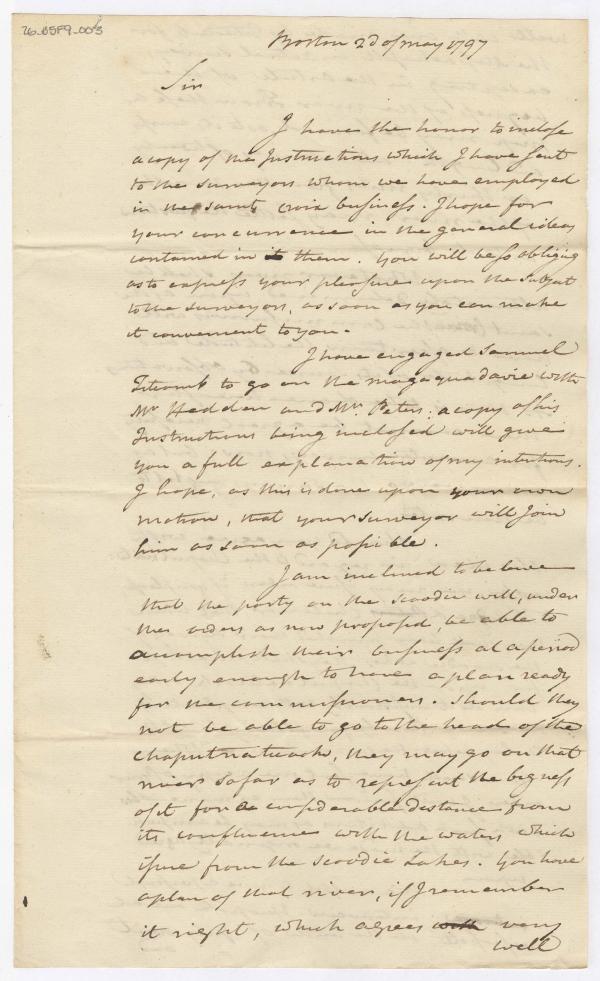 76.B5F9.003
Boston 2d of may 1797
Sir
I have the honor to inclose
a copy of the Instructions which I have sent
to the surveyors whom we have employed
in the saint croix business. I hope for
your concurrence in the general ideas
contained in it them. you will be so obliging
as to express your pleasure upon the subject
to the surveyors, as soon as you can make
it convenient to you.
I have engaged Samuel
Titcomb to go on the magaquadavie with
Mr. Hedden and Mr. Peters: a copy of his
Instructions being inclosed will give
you a full explanation of my intentions.
I hope, as this is done upon your own
motion, that your surveyor will Join
him as soon as possible.
I am inclined to believe
that the party on the scoodie will, under
the orders as now proposed, be able to
accomplish their business at a period
early enough to have a plan ready
for the commissioners. Should they
not be able to go to the head of the
Chaputnateack, they may go on that
river so far as to represent the bigness
of it for a considerable distance from
its confluence with the waters which
issue from the scoodie Lakes. you have
a plan of that river, if I remember
it right, which agrees with very
well